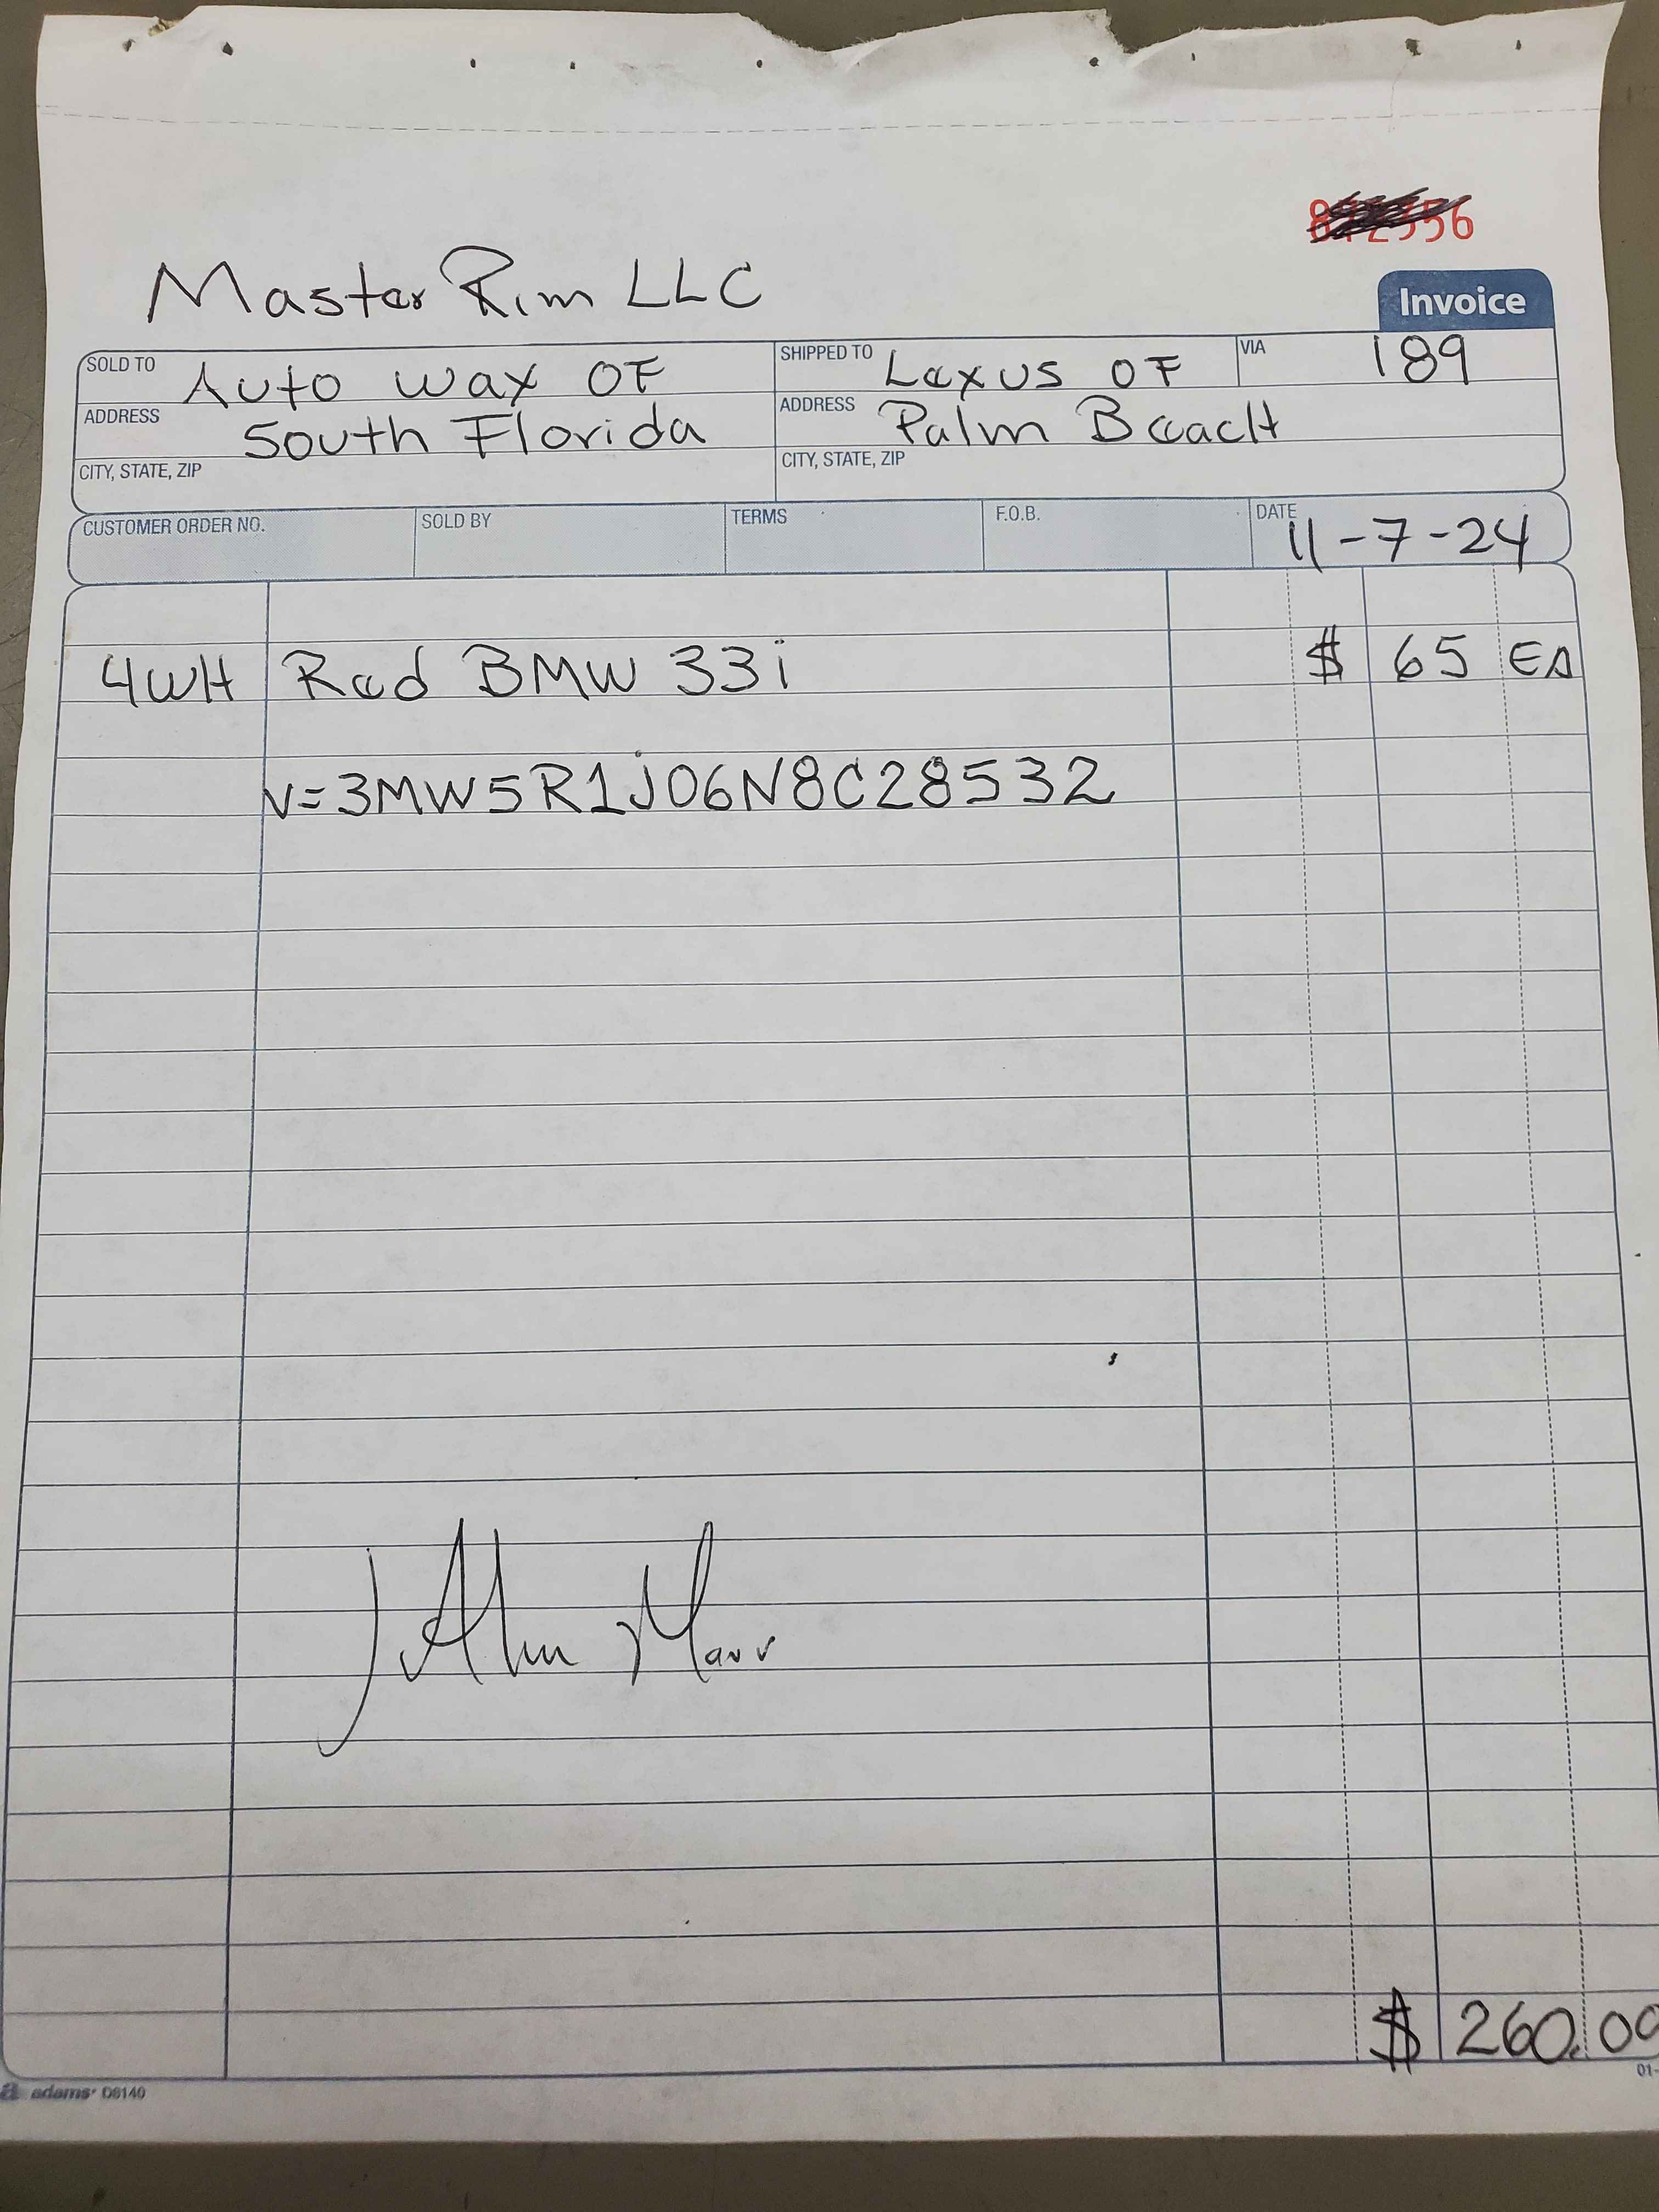 Master Rim LLC
Invoice
SOLD TO Auto wax OF
SHIPPED TO Lexus OF
VIA 189
ADDRESS South Florida
ADDRESS Palm BeacH
CITY, STATE, ZIP
CITY, STATE, ZIP
CUSTOMER ORDER NO. SOLD BY TERMS F.O.B. DATE 11-7-24
4WH Red BMW 33i $ 65 EA
V=3MW5R1J06N8C28532
$ 260.00
adams D8140